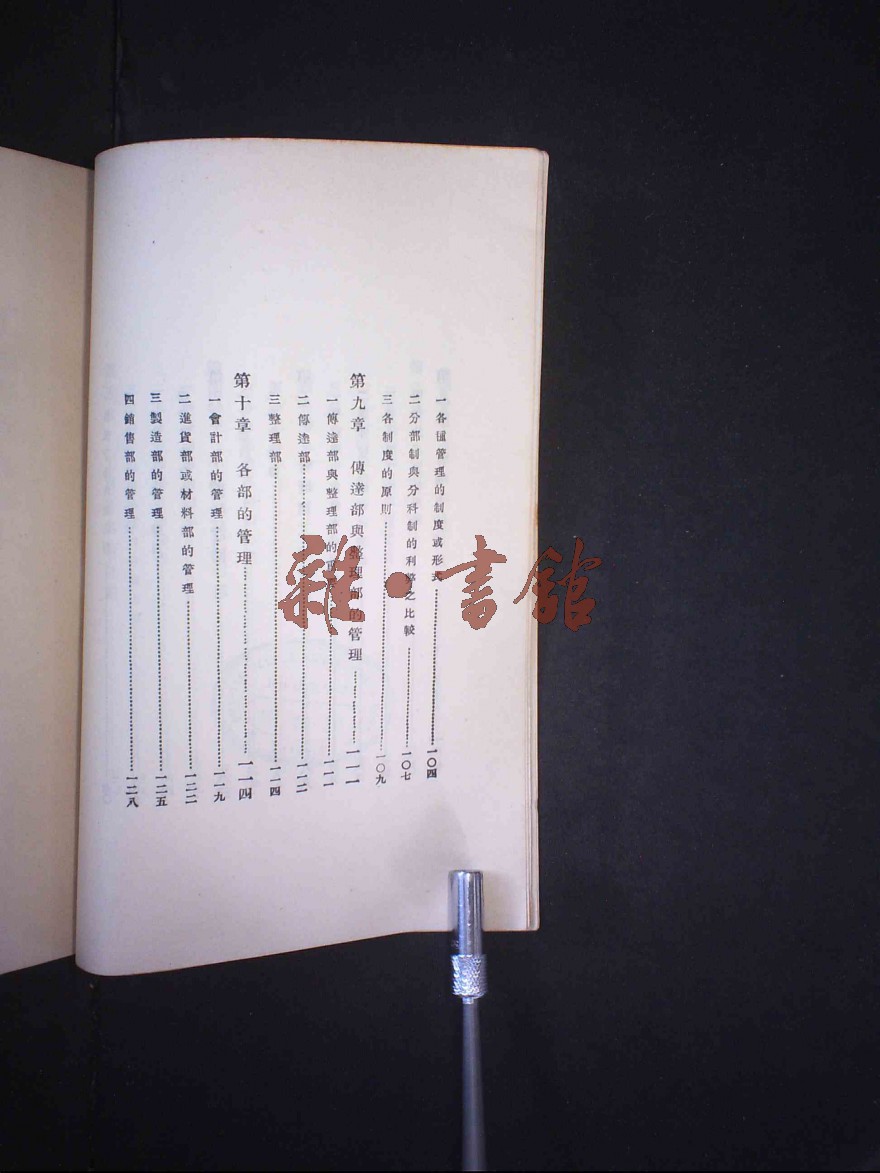 一 各種管理的制度或形式…………一〇四
二 分部制與分科制的利弊之比較…………一〇七
三 各制度的原則…………一〇九
第九章 傳達部與整理部的管理…………一一一
一 傳達部與整理部的…………一一一
二 傳達部…………一一二
三 整理部…………一一四
第十章 各部的管理…………一一四
一 會計部的管理…………一一九
二 進貨部或材料部的管理…………一二二
三 製造部的管理…………一二五
四 銷售部的管理…………一二八
雜·書館